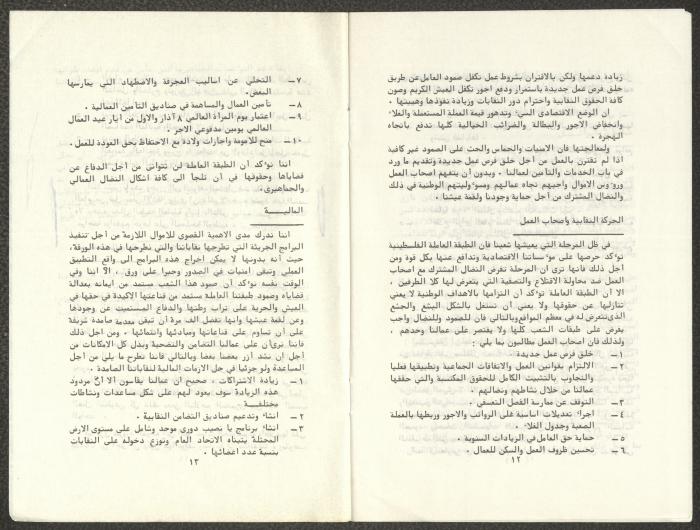 زيادة دعمها ولكن بالاقتران بشروط عمل تكفل صمود العامل عن طريق
خلق فرص عمل جديدة باستمرار ودفع اجور تكفل العيش الكريم وصون
كافة الحقوق النقابية واحترام دور النقابات وزيادة نفوذها وهيبتها .
ان الوضع الاقتصادي السيء وتدهور قيمة العملة المستعملة والغلاء
وانخفاض الاجور والبطالة والضرائب الخيالية كلها تدفع باتجاه
الهجرة .
ولمعالجتها فان الامنيات والحماس والحث على الصمود غير كافية
اذا لم تقترن بالعمل من أجل خلق فرص عمل جديدة وتقديم ما ورد
في باب الخدمات والتأمين لعمالنا . وبدون أن يتفهم اصحاب العمل
ورؤوس الاموال واجبهم تجاه عمالهم ومسؤوليتهم الوطنية في ذلك
والنضال المشترك من أجل حماية وجودنا ولقمة عيشنا .
الحركة النقابية واصحاب العمل
في ظل المرحلة التي يعيشها شعبنا فان الطبقة العاملة الفلسطينية
تؤكد حرصها على مؤسساتنا الاقتصادية وتدافع عنها بكل قوة ومن
أجل ذلك فانها ترى ان المرحلة تفرض النضال المشترك مع اصحاب
العمل ضد محاولة الاقتلاع والتصفية التي يتعرض لها كلا الطرفين ،
الا أن الطبقة العاملة تؤكد أن التزامها بالاهداف الوطنية لا يعني
تنازلها عن حقوقها ولا يعني أن تستغل بالشكل البشع والجشع
الذي تتعرض له في معظم المواقع وبالتالي فان للصمود وللنضال واجب
يفرض على طبقات الشعب كلها ولا يقتصر على عمالنا وحدهم ،
ولذلك فان اصحاب العمل مطالبون بما يلي :
١ – خلق فرص عمل جديدة .
٢ – الالتزام بقوانين العمل والاتفاقات الجماعية وتطبيقها فعليا
والتجاوب بالتثبيت الكامل للحقوق المكتسبة والتي حققها
عمالنا من خلال نشاطهم ونضالهم .
٣ – التوقف عن ممارسة الفصل التعسفي .
٤ – اجراء تعديلات اساسية على الرواتب والاجور وربطها بالعملة
الصعبة وجدول الغلاء .
٥ – حماية حق العامل في الزيادات السنوية .
٦ – تحسين ظروف العمل والسكن للعمال .
١٢
٧ – التخلي عن اساليب العجرفة والاضطهاد التي يمارسها
البعض .
٨ – تأمين العمال والمساهمة في صناديق التأمين العمالية .
٩ – اعتبار يوم المرأة العالمي ٨ آذار والاول من أيار عيد العمال
العالمي يومين مدفوعي الاجر .
١٠ – منح للامومة واجازات ولادة مع الاحتفاظ بحق العودة للعمل .
اننا نؤكد أن الطبقة العاملة لن تتوانى من أجل الدفاع عن
قضاياها وحقوقها في أن تلجأ الى كافة اشكال النضال العمالي
والجماهيري .
الماليــــة
اننا ندرك مدى الاهمية القصوى للاموال اللازمة من أجل تنفيذ
البرامج الجريئة التي تطرحها نقاباتنا والتي نطرحها في هذه الورقة ،
حيث أنه بدونها لا يمكن اخراج هذه البرامج الى واقع التطبيق
العملي وتبقى امنيات في الصدور وحبرا على ورق ، الا اننا وفي
الوقت نفسه نؤكد أن صمود هذا الشعب مستمد من ايمانه بعدالة
قضاياه وصمود طبقتنا العاملة مستمد من قناعتها الاكيدة في حقها في
العيش والحرية على تراب وطنها والدفاع المستميت عن وجودها
وعن لقمة عيشها وانها تفضل الف مرة أن تبقى معدمة صامدة شريفة
على أن تساوم على قناعاتها ومبادئها وانتمائها ، ومن أجل ذلك
فاننا نرى أن على عمالنا التضامن والتضحية وبذل كل الامكانات من
أجل ان نشد أزر بعضنا بعضا وبالتالي فاننا نطرح ما يلي من أجل
المساعدة ولو جزئيا في حل الازمات المالية لنقاباتنا الصامدة .
١ – زيادة الاشتراكات ، صحيح ان عمالنا يقاسون الا أن مردود
هذه الزيادة سوف يعود لهم على شكل مساعدات ونشاطات
مختلفــة .
٢ – انشاء وتدعيم صناديق التضامن النقابية .
٣ – انشاء برنامج يا نصيب دوري موحد وشامل على مستوى الارض
المحتلة يتبناه الاتحاد العام ونوزع دخوله على النقابات
بنسبة عدد اعضائها .
١٣